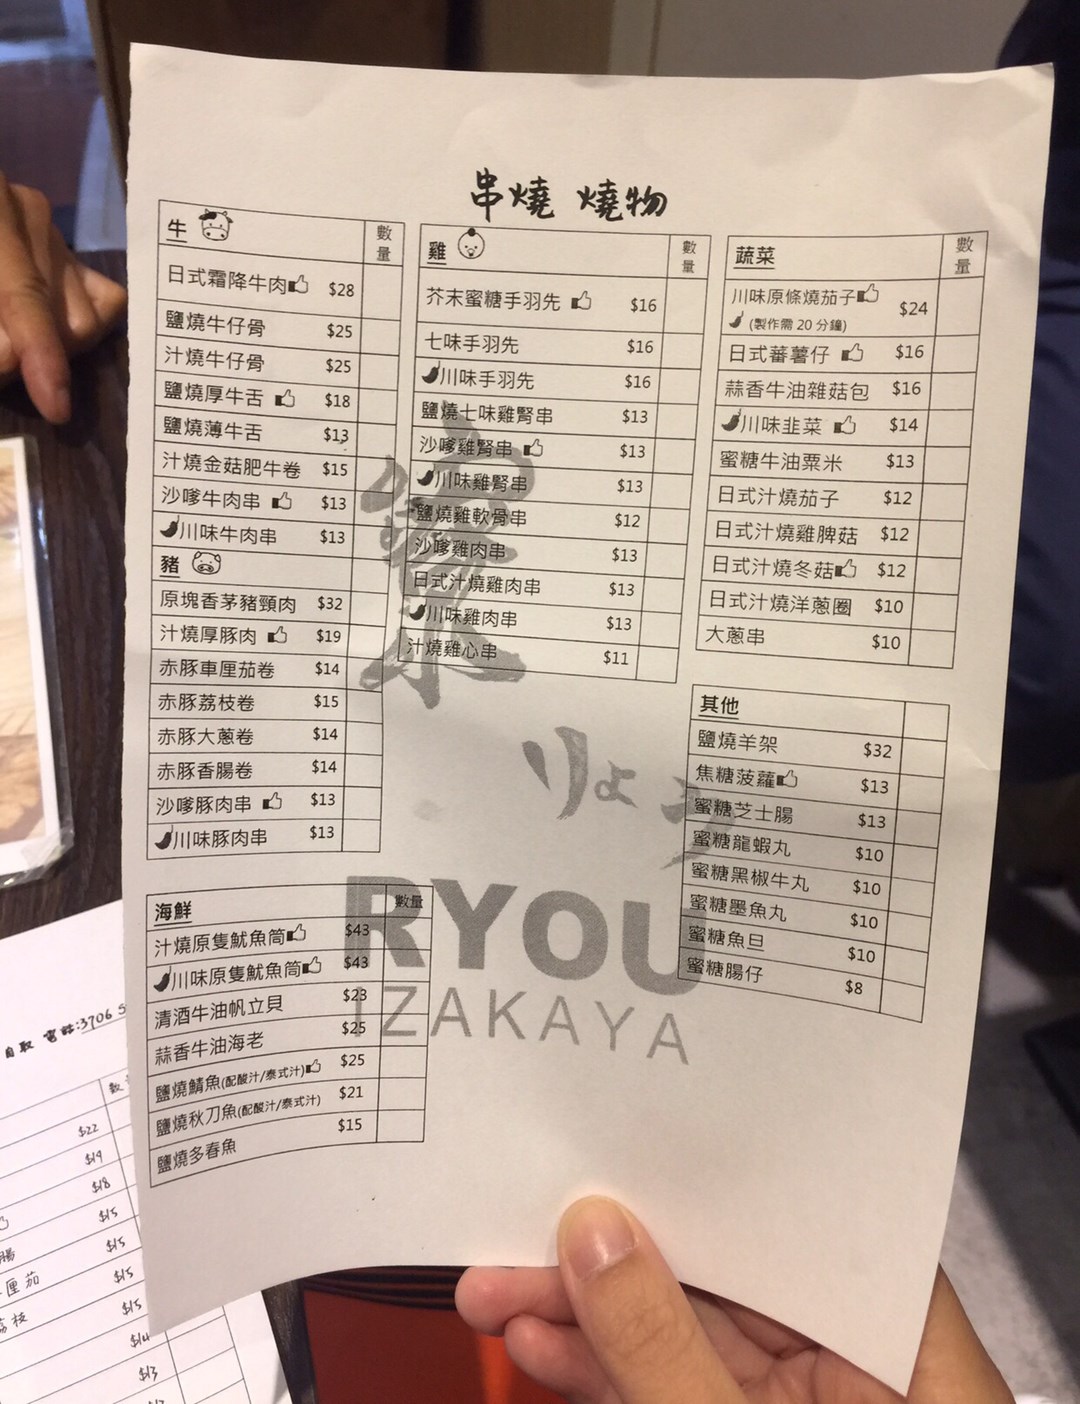 串燒 燒物
牛 數量
日式霜降牛肉 $28
鹽燒牛仔骨 $25
汁燒牛仔骨 $25
鹽燒厚牛舌 $18
鹽燒薄牛舌 $13
汁燒金菇肥牛卷 $15
沙嗲牛肉串 $13
川味牛肉串 $13
豬
原塊香茅豬頸肉 $32
汁燒厚豚肉 $19
赤豚車厘茄卷 $14
赤豚荔枝卷 $15
赤豚大蔥卷 $14
赤豚香腸卷 $14
沙嗲豚肉串 $13
川味豚肉串 $13
海鮮 數量
汁燒原隻魷魚筒 $43
川味原隻魷魚筒 $43
清酒牛油帆立貝 $23
蒜香牛油海老 $25
鹽燒鯖魚(配酸汁/泰式汁) $25
鹽燒秋刀魚(配酸汁/泰式汁) $21
鹽燒多春魚 $15
雞 數量
芥末蜜糖手羽先 $16
七味手羽先 $16
川味手羽先 $16
鹽燒七味雞腎串 $13
沙嗲雞腎串 $13
川味雞腎串 $13
鹽燒雞軟骨串 $12
沙嗲雞肉串 $13
日式汁燒雞肉串 $13
川味雞肉串 $13
汁燒雞心串 $11
蔬菜 數量
川味原條燒茄子 $24
(製作需 20 分鐘)
日式蕃薯仔 $16
蒜香牛油雜菇包 $16
川味韭菜 $14
蜜糖牛油粟米 $13
日式汁燒茄子 $12
日式汁燒雞脾菇 $12
日式汁燒冬菇 $12
日式汁燒洋蔥圈 $10
大蔥串 $10
其他
鹽燒羊架 $32
焦糖菠蘿 $13
蜜糖芝士腸 $13
蜜糖龍蝦丸 $10
蜜糖黑椒牛丸 $10
蜜糖墨魚丸 $10
蜜糖魚旦 $10
蜜糖腸仔 $8
寮
りょう
RYOU
IZAKAYA
自取 電話:3706 5
$22
$19
$18
$15
腸 $15
厘茄 $15
荔枝 $15
$14
$13